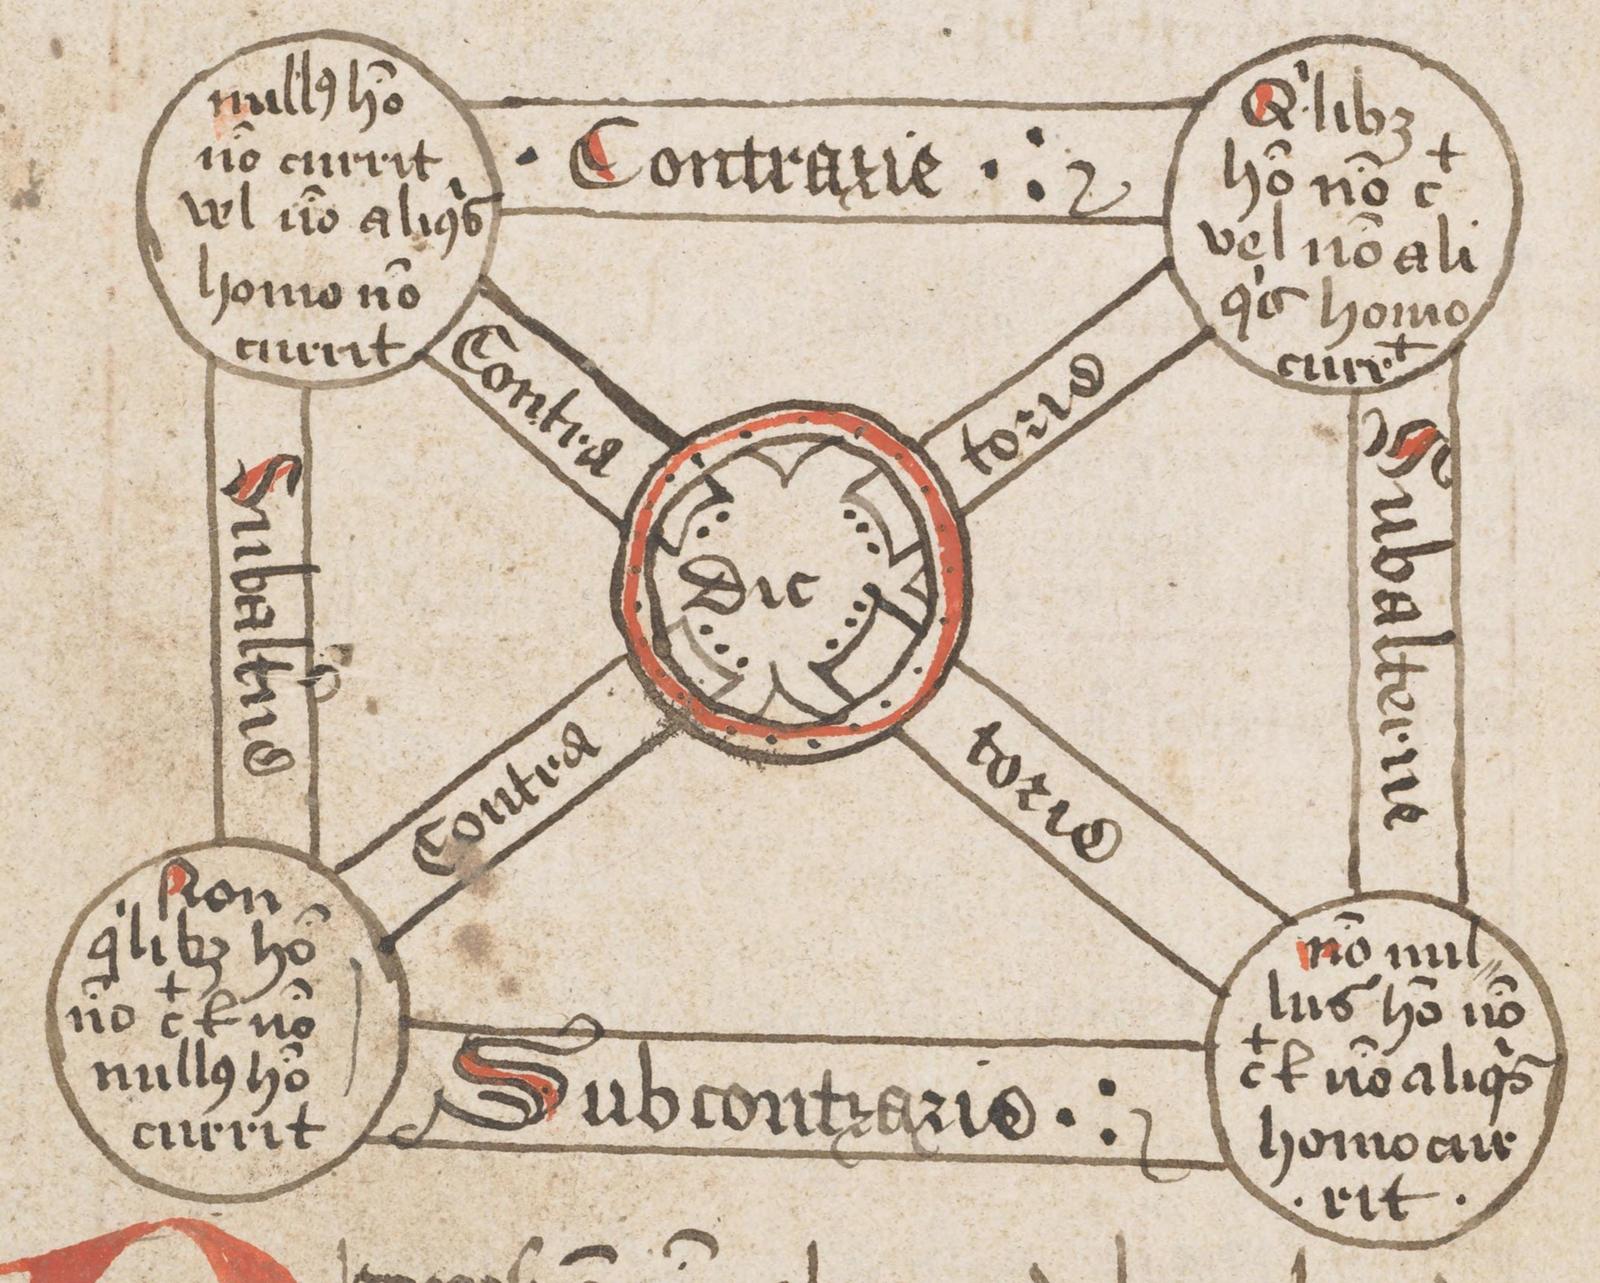 nullꝰ hō
nō currit
vel nō aliqͥs
homo nō
currit
· Contrarie · :
Qͥlibꝫ
hō nō cᵗ
vel nō ali
qͥs homo
currᵗ
Contra
torie
Dic
Contra
torie
Subalt͛ne
Subalterne
Non
qͥlibꝫ hō
nō cᵗ ꝉ nō
nullꝰ hō
currit
Subcontrarie · :
nō nul
lus hō nō
cᵗ ꝉ nō aliqͥs
homo cur
· rit ·